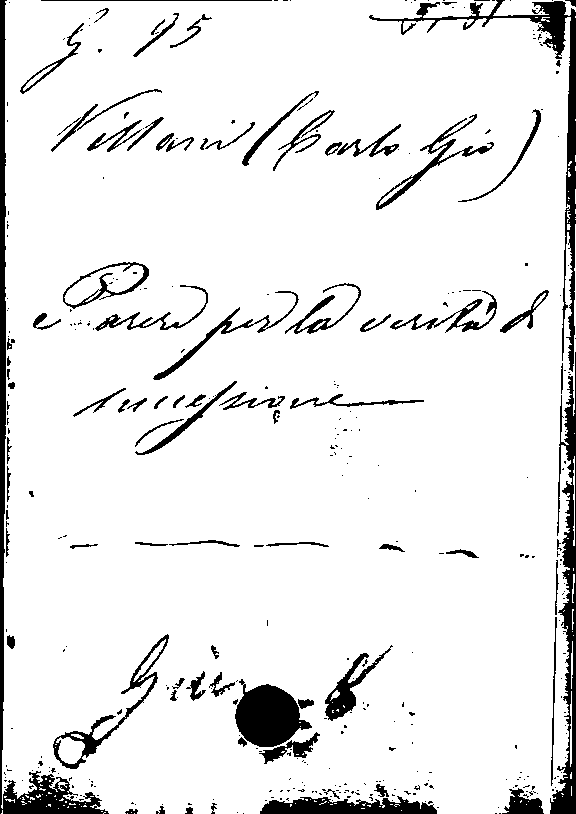 G. 95
Villani (Carlo Gio)
Parere per la verità di
successione